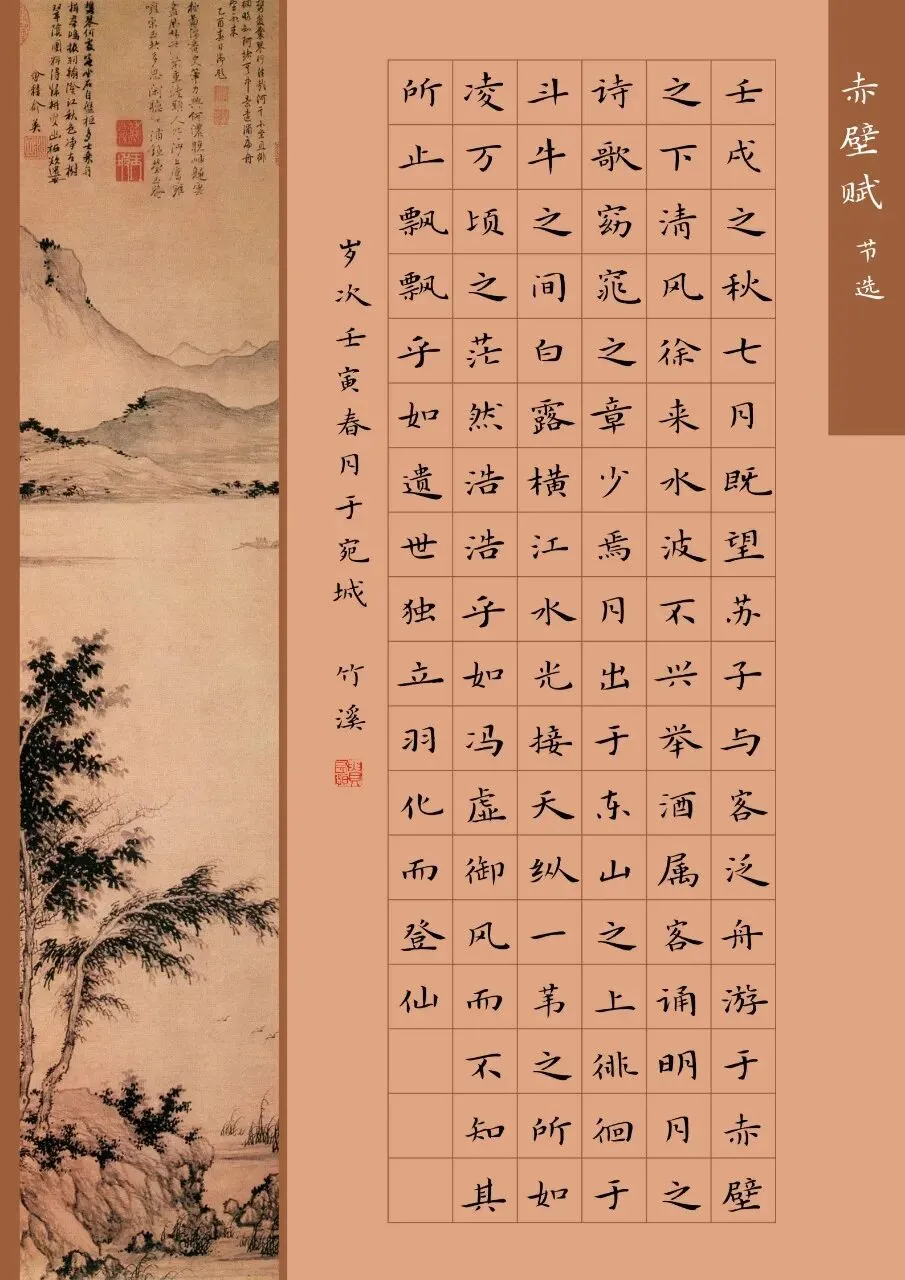 赤壁赋 节选
壬戌之秋七月既望苏子与客泛舟游于赤壁
之下清风徐来水波不兴举酒属客诵明月之
诗歌窈窕之章少焉月出于东山之上徘徊于
斗牛之间白露横江水光接天纵一苇之所如
凌万顷之茫然浩浩乎如冯虚御风而不知其
所止飘飘乎如遗世独立羽化而登仙
岁次壬寅春月于宛城 竹溪